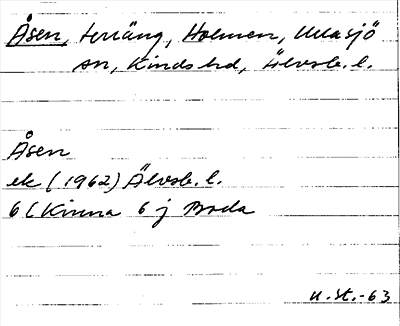 Åsen, terräng, Holmen, Ullasjö
sn, Kinds hd, Älvsb. l.
Åsen
ek (1962) Älvsb. l.
6 C Kinna 6 j Boda
u. st. -63